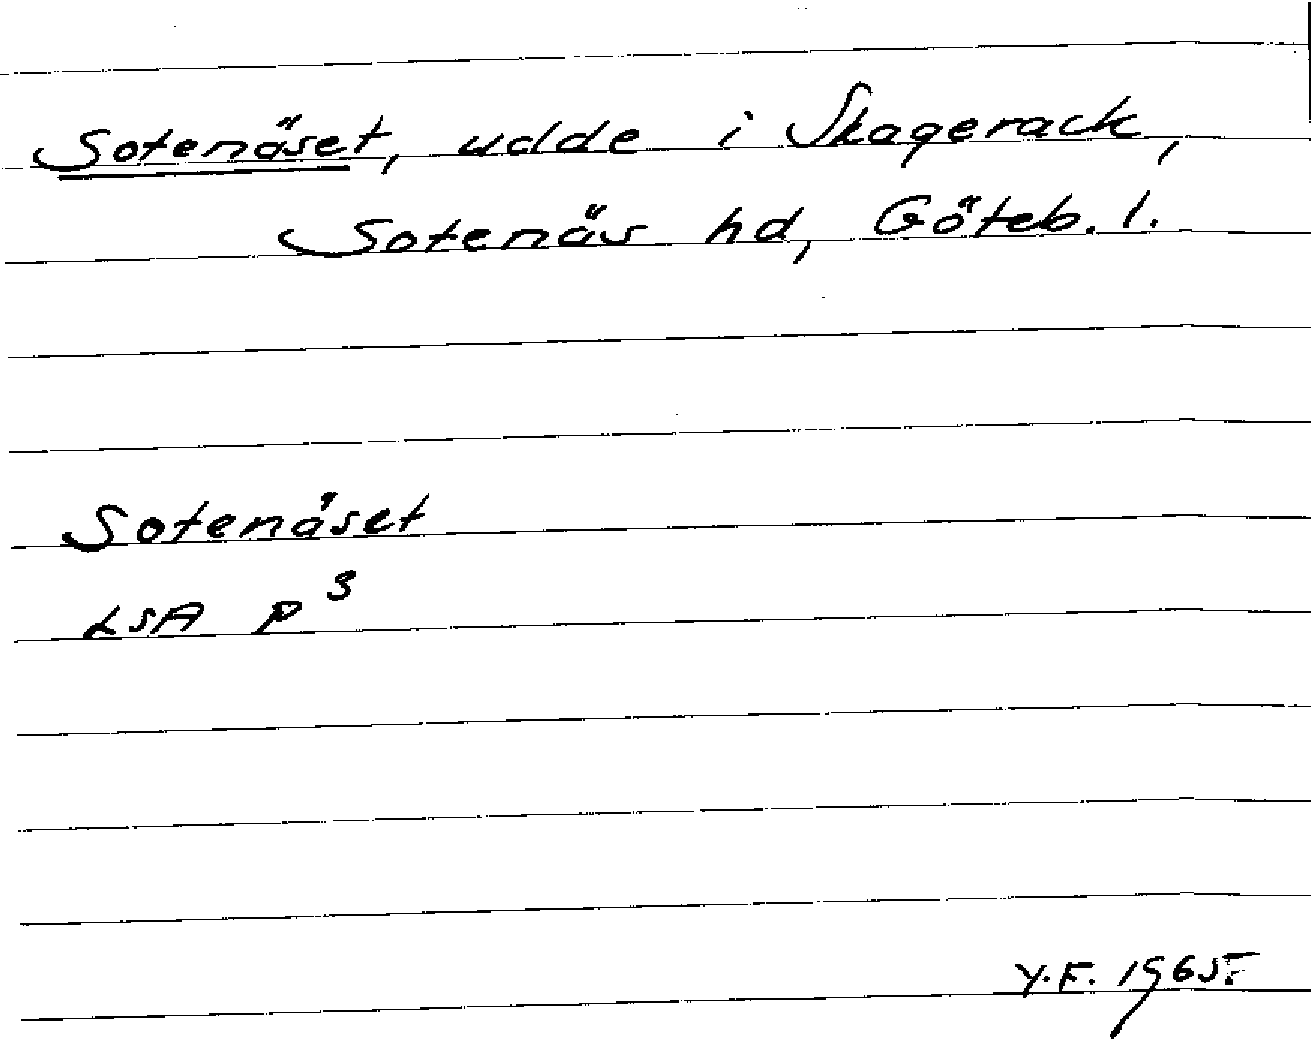 Sotenäset, udde i Skagerack,
Sotenäs hd, Göteb. l.
Sotenäset
LSA P³
Y.F. 1965.